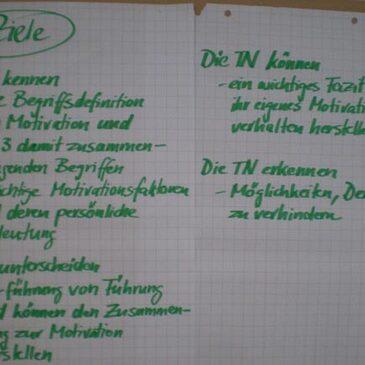 Ziele
kennen
Begriffsdefinition
Motivation und
3 damit zusammen-
genden Begriffen
chtige Motivationsfaktoren
deren persönliche
eutung
unterscheiden
führung von Führung
d können den Zusammen-
g zur Motivation
stellen
Die TN können
- ein wichtiges Fazit
ihr eigenes Motivati
verhalten herstelle
Die TN erkennen
- Möglichkeiten, De
zu verhindern